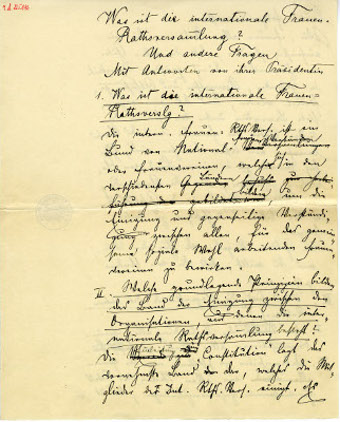 Was ist die internationale Frauen-
Rathsversamlung?
Und andere Fragen
Mit Antworten von ihrer Präsidentin
1. Was ist die internationale Frauen=
Rathsverslg?
Die intern. Frauen= Rths.Vers. ist ein
Bund von National
oder Frauenvereinen, welche in den
verschiedensten Ländern
bilden, um die
Einigung und gegenseitige Verständi
gung zwischen allen für das gemein
same soziale Wohl arbeitenden Frauen
vereinen zu bewirken.
II. Welche grundlegende Prinzipien bilden
das Band der Einigung zwischen den
Organisationen, aus denen die inter
nationale Rathsversamlung besteht?
Die Constitution legt das
vornehmste Band dar, welches die Mit
glieder des Int. Rths. Vers. einigt.